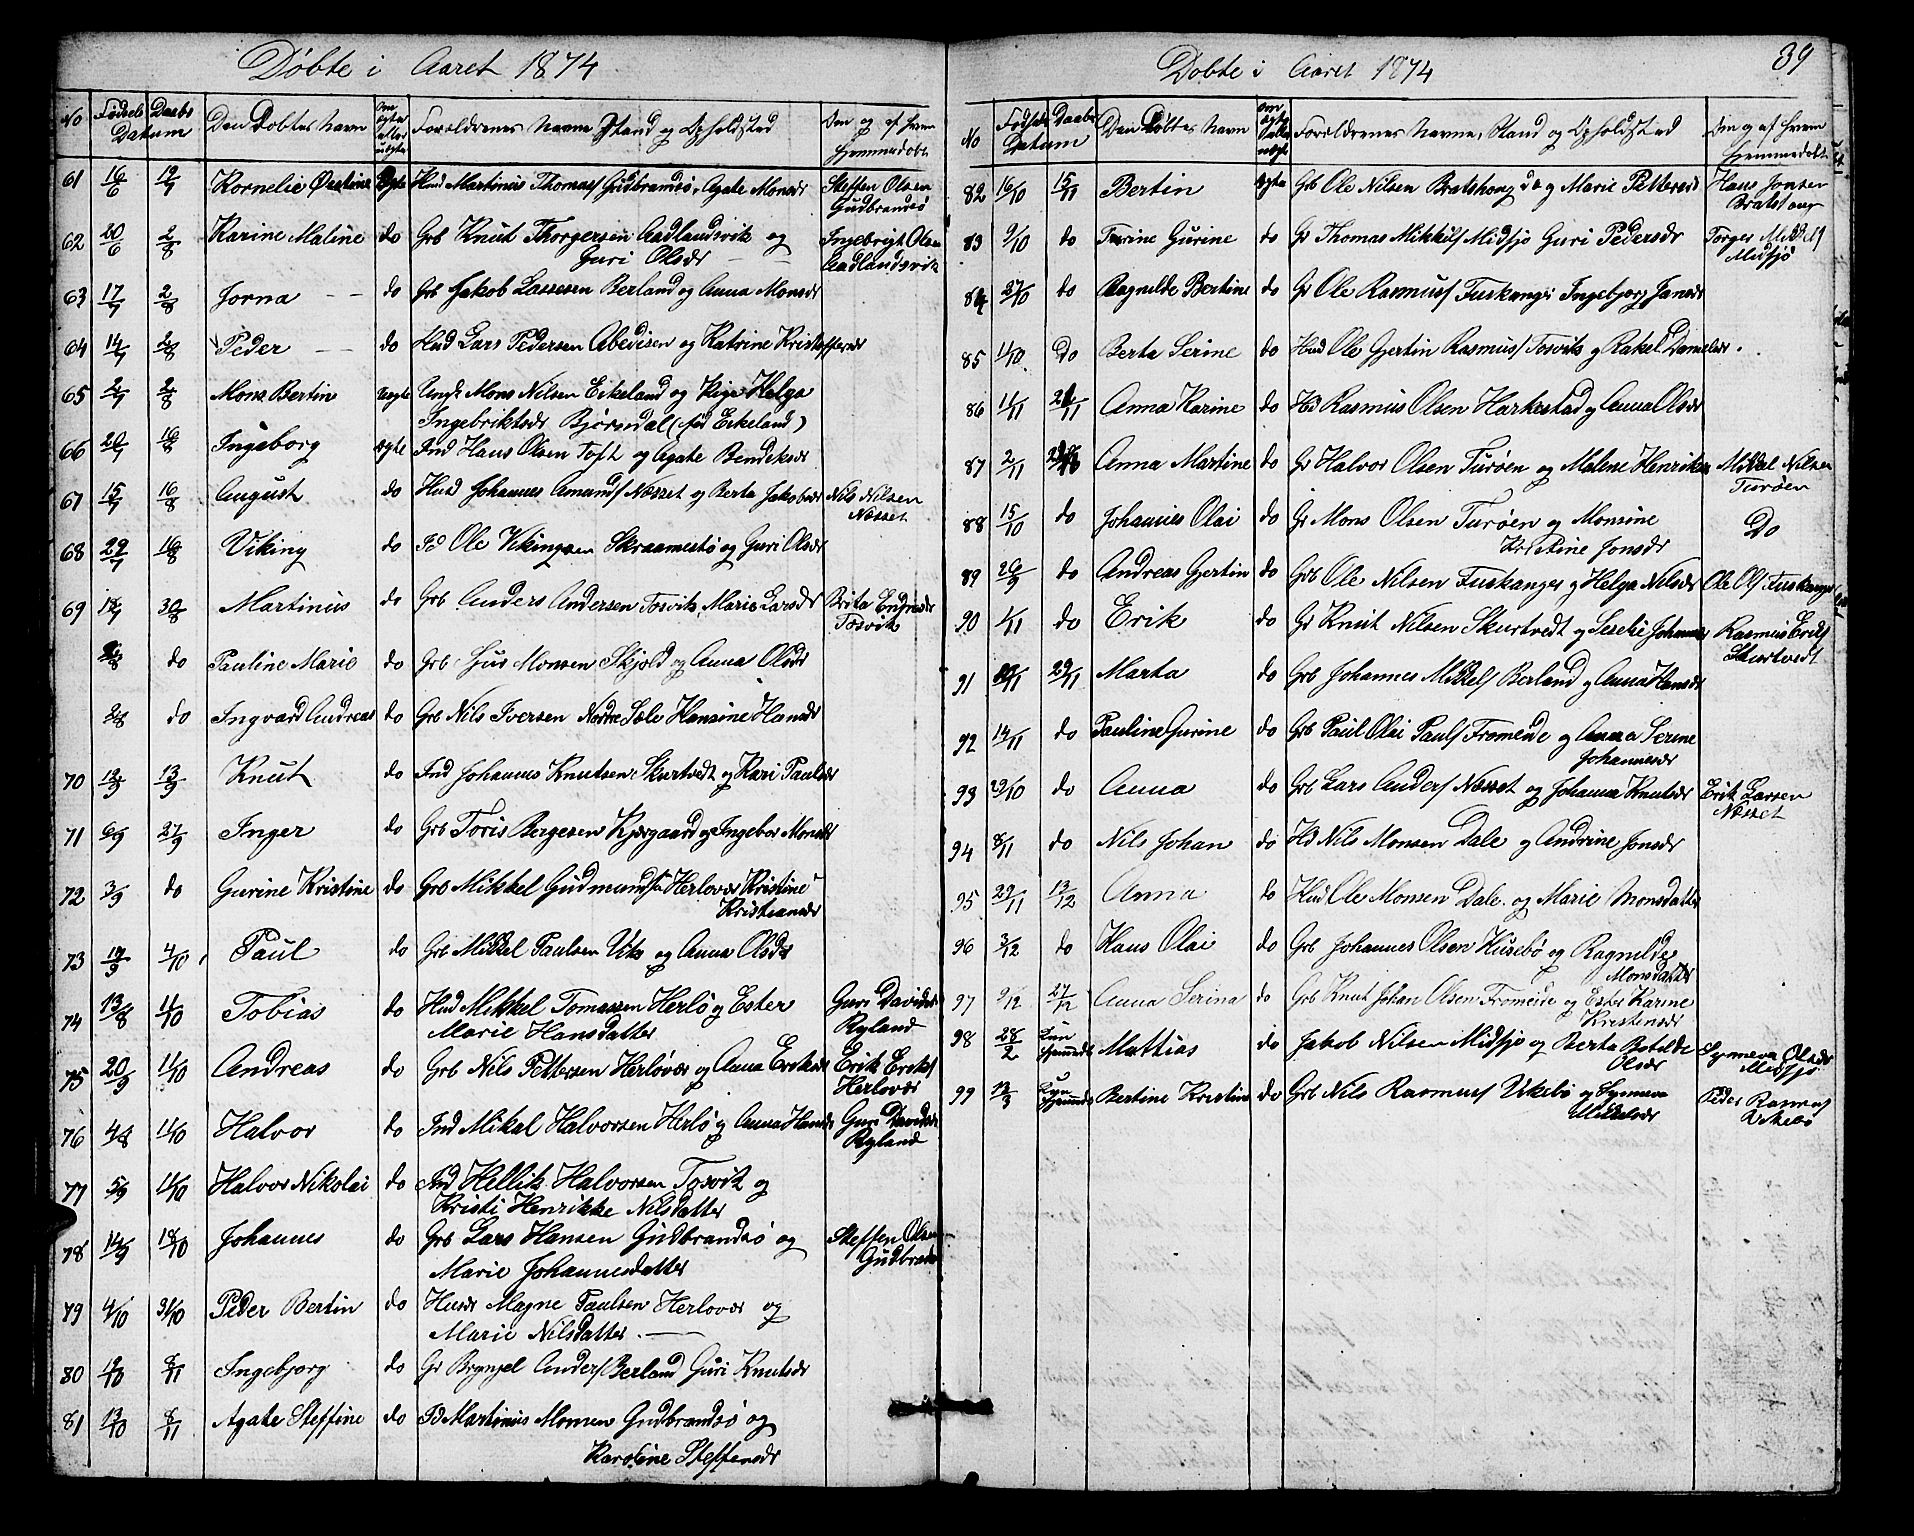 Døbte i Aaret 1874
No Fødsels Daabs Datum Den Døbtes Navn Om ægte eller uægte Forældrenes Navne Stand og Opholdsted Om og af hvem hjemmedøbt
61 16/6 19/7 Kornelie Øvertine Ægte Hud Martinus Thomas/ Gudbrandsø, Agate Monsdr Steffen Olsen
Gudbrandsø
62 20/6 2/8 Karine Maline do Grb Knut Thorgersen Aadlandsvik og Ingebrigt Olsen
Guri Olsdr Aadlandsvik
63 17/7 2/8 Jorna do Grb Jakob Lassesen Berland og Anna Monsdr
64 14/7 2/8 Peder do Hud Lars Pedersen Abedisen og Katrine Kristofferdr
65 2/7 2/8 Mons Bertin Uegte Ungk Mons Nilsen Eikeland og Pige Helga
Ingebriktsdr Bjørndal (fød Eikeland)
66 20/7 16/8 Ingeborg ægte Ind Hans Olsen Toft og Agate Bendiksdr
67 15/7 16/8 August do Husd Johannes Amunds/ Næsset og Berta Jakobsdr Nils Nilsen
Næsset
68 29/7 16/8 Viking do Id Ole Vikingsen Skraamestø og Guri Olsdr
69 12/7 30/8 Martinus do Grb Anders Andersen Tosvik, Marie Larsdr Brita Endresdr
Tosvik
do Pauline Marie do Grb Sjur Monsen Skjold og Anna Olsdr
2/8 do Ingvard Andreas do Grb Nils Iversen Nordre Sæle Hansine Hansdr
70 12/9 13/9 Knut do Ind Johannes Knutsen Skurtvedt og Kari Paulsdr
71 6/9 27/9 Inger do Grb Toris Bergesen Kjærgaard og Ingebor Monsdr
72 3/9 do Gurine Kristine do Grb Mikkel Gudmunds/ Herlovær Kristine
Kristiansdr
73 19/9 4/10 Paul do Grb Mikkel Paulsen Vik og Anna Olsdr
74 13/8 11/10 Tobias do Hud Mikkel Tomassen Herlø og Ester Guri Davidsdr
Marie Hansdatter Ryland
75 20/9 11/10 Andreas do Grb Nils Pettersen Herløvær og Anna Eriksdr Erik Eriks/
Herlovær
76 4/8 11/10 Halvor do Ind Mikal Halvorsen Herlø og Anna Hansdr Guri Davidsdr
Ryland
77 5/9 11/10 Halvor Nikolai do Ind Hellik Halvorsen Tosvik og
Kristi Henrikke Nilsdatter
78 14/9 18/10 Johannes do Grb Lars Hansen Gudbrandsø og Steffen Olsen
Marie Johannesdatter Gudbrands
79 4/10 31/10 Peder Bertin do Husdr Magne Paulsen Herlovær og
Marie Nilsdatter
80 19/10 8/11 Ingebjorg do Gr Brynjel Anders/ Berland Guri Knutsdr
81 13/10 8/11 Agate Steffine do Id Martinus Monsen Gudbrandsø og
Karoline Steffensdr
39
Døbte i Aaret 1874
No Fødsels Daabs Datum Den Døbtes Navn Om ægte eller uægte Forældrenes Navne, Stand og Opholdsted Om og af hvem hjemmedøbt
82 16/10 15/11 Bertin Ægte Grb Ole Nilsen Bratshoug do og Marie Pettersdr Hans Jonsen
Bratshoug
83 9/10 do Turine Gurine do Gr Thomas Mikkels/ Midsjø Guri Pedersdr Torger Mikkels/
Midsjø
84 27/10 do Ragnilde Bertine do Gr Ole Rasmus/ Fuskanger Ingebjorg Jansdr
85 11/10 Do Berta Serine do Hud Ole Gjertin Rasmus/ Tosvik og Rakel Danielsdr
86 11/11 22/11 Anna Karine do Hd Rasmus Olsen Harkestad og Anna Olsdr
87 2/11 Anna Martine do Gr Halvor Olsen Turøen og Malene Henriksen Mikkel Nilsen
Turøen
88 15/10 do Johannes Olai do Gr Mons Olsen Turøen og Monsine Do
Kristine Jonsdr
89 26/9 do Andreas Gjertin do Grb Ole Nilsen Fuskanger og Helga Nilsdr Ole Ols/ Fuskanger
90 1/11 do Erik do Gr Knut Nilsen Skurtvedt og Seselie Johannes Rasmus Eriks/
Skurtvedt
91 29/11 Marta do Grb Johannes Mikkels/ Berland og Anna Hansdr
92 14/11 do Pauline Gurine do Grb Paul Olai Pauls/ Fromeide og Anna Serine
Johannesdr
93 29/10 do Anna do Grb Lars Anders/ Næsset og Johanna Knutsdr Erik Larsen
Næsset
94 8/11 do Nils Johan do Hd Nils Monsen Dale og Andrine Jonsdr
95 29/11 13/12 Anna do Hud Ole Monsen Dale og Marie Monsdatter
96 3/12 do Hans Olai do Grb Johannes Olsen Husebø og Ragnilde
Monsdatter
97 9/12 27/12 Anna Serina do Grb Knut Johan Olsen Fromeide og Ester Karine
Kristensdr
98 28/2 Kun hjemmedt Mattias do Jakob Nilsen Midsjø og Berta Botilde Synneva Olsdr
Olsdr Midsjø
99 12/3 Kun hjemmedt Bertine Kristine do Grb Nils Rasmus/ Uskebø og Synneva Peder Rasmus/
Mikkelsdr Uskebø